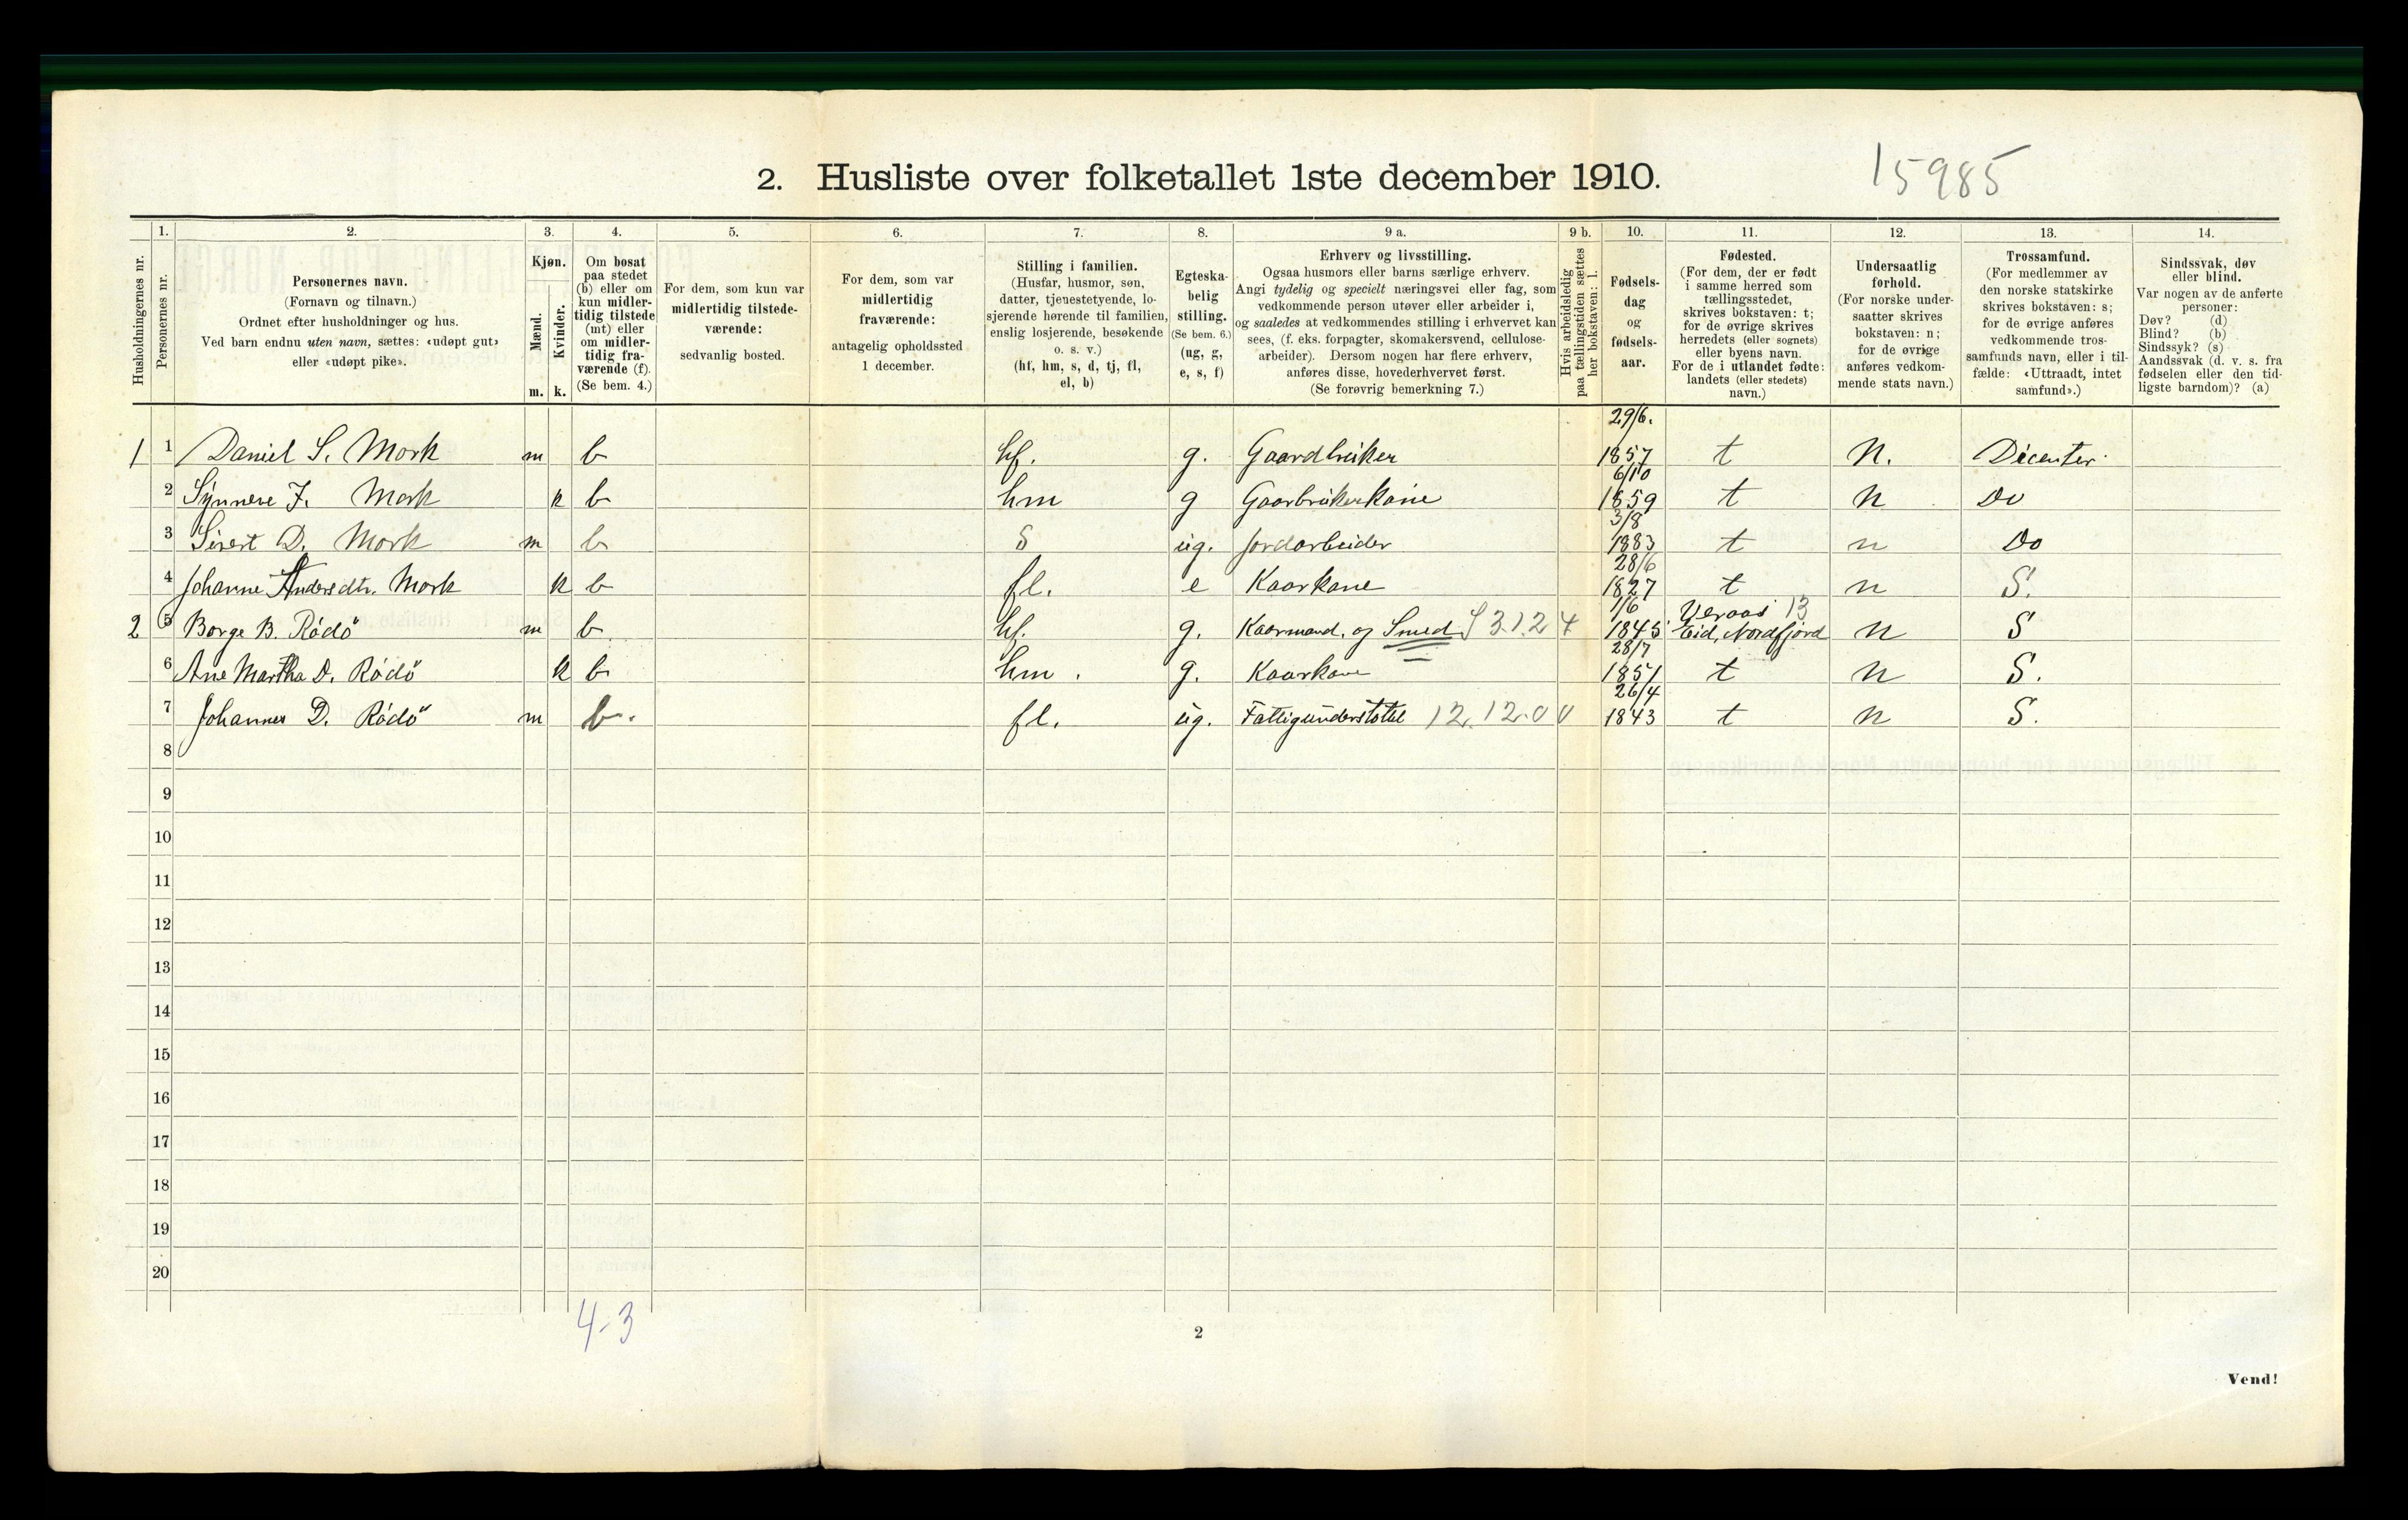 2. Husliste over folketallet 1ste december 1910.
15985
1. 2. 3. 4. 5. 6. 7. 8. 9 a. 9 b. 10. 11. 12. 13. 14.
Husholdningernes nr.
Personernes nr.
Personernes navn.
(Fornavn og tilnavn.)
Ordnet efter husholdninger og hus.
Ved barn endnu uten navn, sættes: «udøpt gut»
eller «udøpt pike».
Kjøn.
Mænd.
Kvinder.
m. k.
Om bosat
paa stedet
(b) eller om
kun midler-
tidig tilstede
(mt) eller
om midler-
tidig fra-
værende (f).
(Se bem. 4.)
For dem, som kun var
midlertidig tilstede-
værende:
sedvanlig bosted.
For dem, som var
midlertidig
fraværende:
antagelig opholdssted
1 december.
Stilling i familien.
(Husfar, husmor, søn,
datter, tjenestetyende, lo-
sjerende hørende til familien,
enslig losjerende, besøkende
o. s. v.)
(hf, hm, s, d, tj, fl,
el, b)
Egteska-
belig
stilling.
(Se bem. 6.)
(ug, g,
e, s, f)
Erhverv og livsstilling.
Ogsaa husmors eller barns særlige erhverv.
Angi tydelig og specielt næringsvei eller fag, som
vedkommende person utøver eller arbeider i,
og saaledes at vedkommendes stilling i erhvervet kan
sees, (f. eks. forpagter, skomakersvend, cellulose-
arbeider). Dersom nogen har flere erhverv,
anføres disse, hovederhvervet først.
(Se forøvrig bemerkning 7.)
Hvis arbeidsledig
paa tællingstiden sættes
her bokstaven: l.
Fødsels-
dag
og
fødsels-
aar.
Fødested.
(For dem, der er født
i samme herred som
tællingsstedet,
skrives bokstaven: t;
for de øvrige skrives
herredets (eller sognets)
eller byens navn.
For de i utlandet fødte:
landets (eller stedets)
navn.)
Undersaatlig
forhold.
(For norske under-
saatter skrives
bokstaven: n;
for de øvrige
anføres vedkom-
mende stats navn.)
Trossamfund.
(For medlemmer av
den norske statskirke
skrives bokstaven: s;
for de øvrige anføres
vedkommende tros-
samfunds navn, eller i til-
fælde: «Uttraadt, intet
samfund».)
Sindssvak, døv
eller blind.
Var nogen av de anførte
personer:
Døv? (d)
Blind? (b)
Sindssyk? (s)
Aandssvak (d. v. s. fra
fødselen eller den tid-
ligste barndom)? (a)
1 1 Daniel S. Mork m b hf. g. Gaardbruker 29/6. 1857 t N. Dicenter
2 Synneve J. Mork k b hm g Gaarbrukerkone 6/10 1859 t N Do
3 Sivert D. Mork m b S ug. Jordarbeider 3/8 1883 t n Do
4 Johanne Andersdtr. Mork k b fl. e Kaarkone 28/6 1827 t n S.
2 5 Borge B. Rødø m b hf. g. Kaarmand, og Smed S 31.2 4 1/6 1845 Eid, Nordfjord 13 n S
6 Ane Martha D. Rødø k b hm. g. Kaarkone 28/7 1851 t n S.
7 Johannes D. Rødø m b. fl. ug. Fattigunderstøttet 12.12.00 26/4 1843 t n S.
8
9
10
11
12
13
14
15
16
17
18
19
20
4-3
2
Vend!